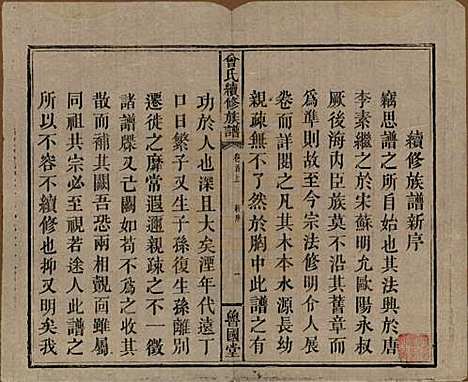 續修族譜新序
竊思譜之所自始也其法興於唐
李素繼之於宋蘇明允歐陽永叔
厥後海內臣族莫不沿其舊章而
爲準則故至今宗法修明介人展
卷而詳閱之凡其木本水源長幼
親疎無不了然於胸中此譜之有
曾氏續修族譜
卷首上
新序
一
魯國堂
功於人也深且大矣湮年代遠丁
口日繁子又生孫孫復生孫離別
遷徙之靡當遐邇親疎之不一徵
諸譜牒已又闕如若不及今收其
散而補其闕吾恐兩相覿面雖屬
同祖共宗必至視若途人此譜之
所以不容不續修也抑又明矣我